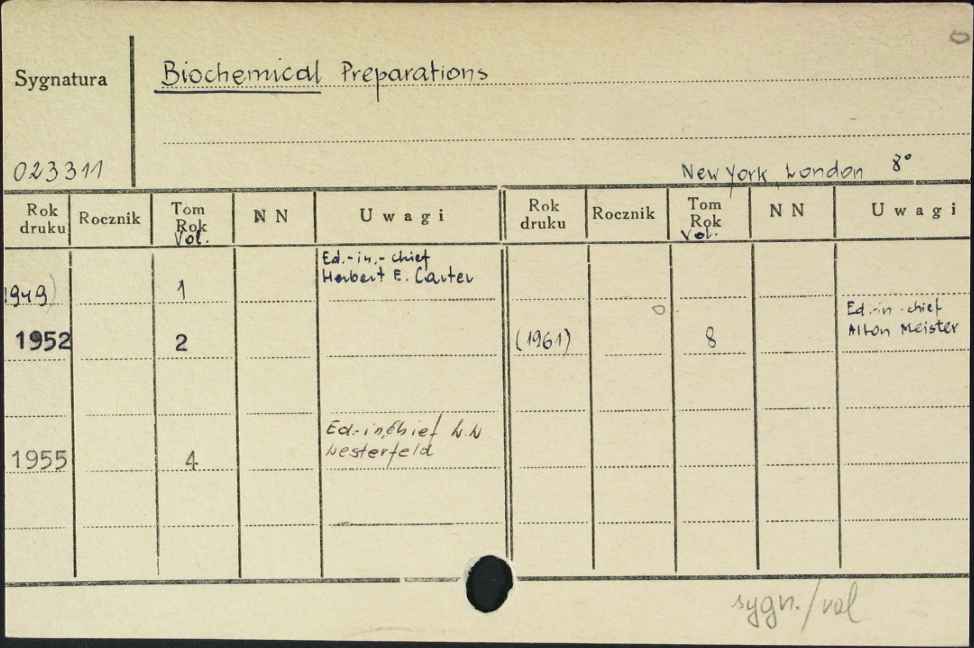 Sygnatura
Biochemical Preparations
023311
New York London 8°
Rok druku Rocznik Tom Rok Vol. NN Uwagi Rok druku Rocznik Tom Rok Vol. NN Uwagi
Ed.-in.-chief
1949) 1 Herbert E. Carter
Ed.-in-chief
1952 2 (1961) 8 Alton Meister
Ed.-in,Chief W.W
1955 4 Westerfeld
sygn./vol